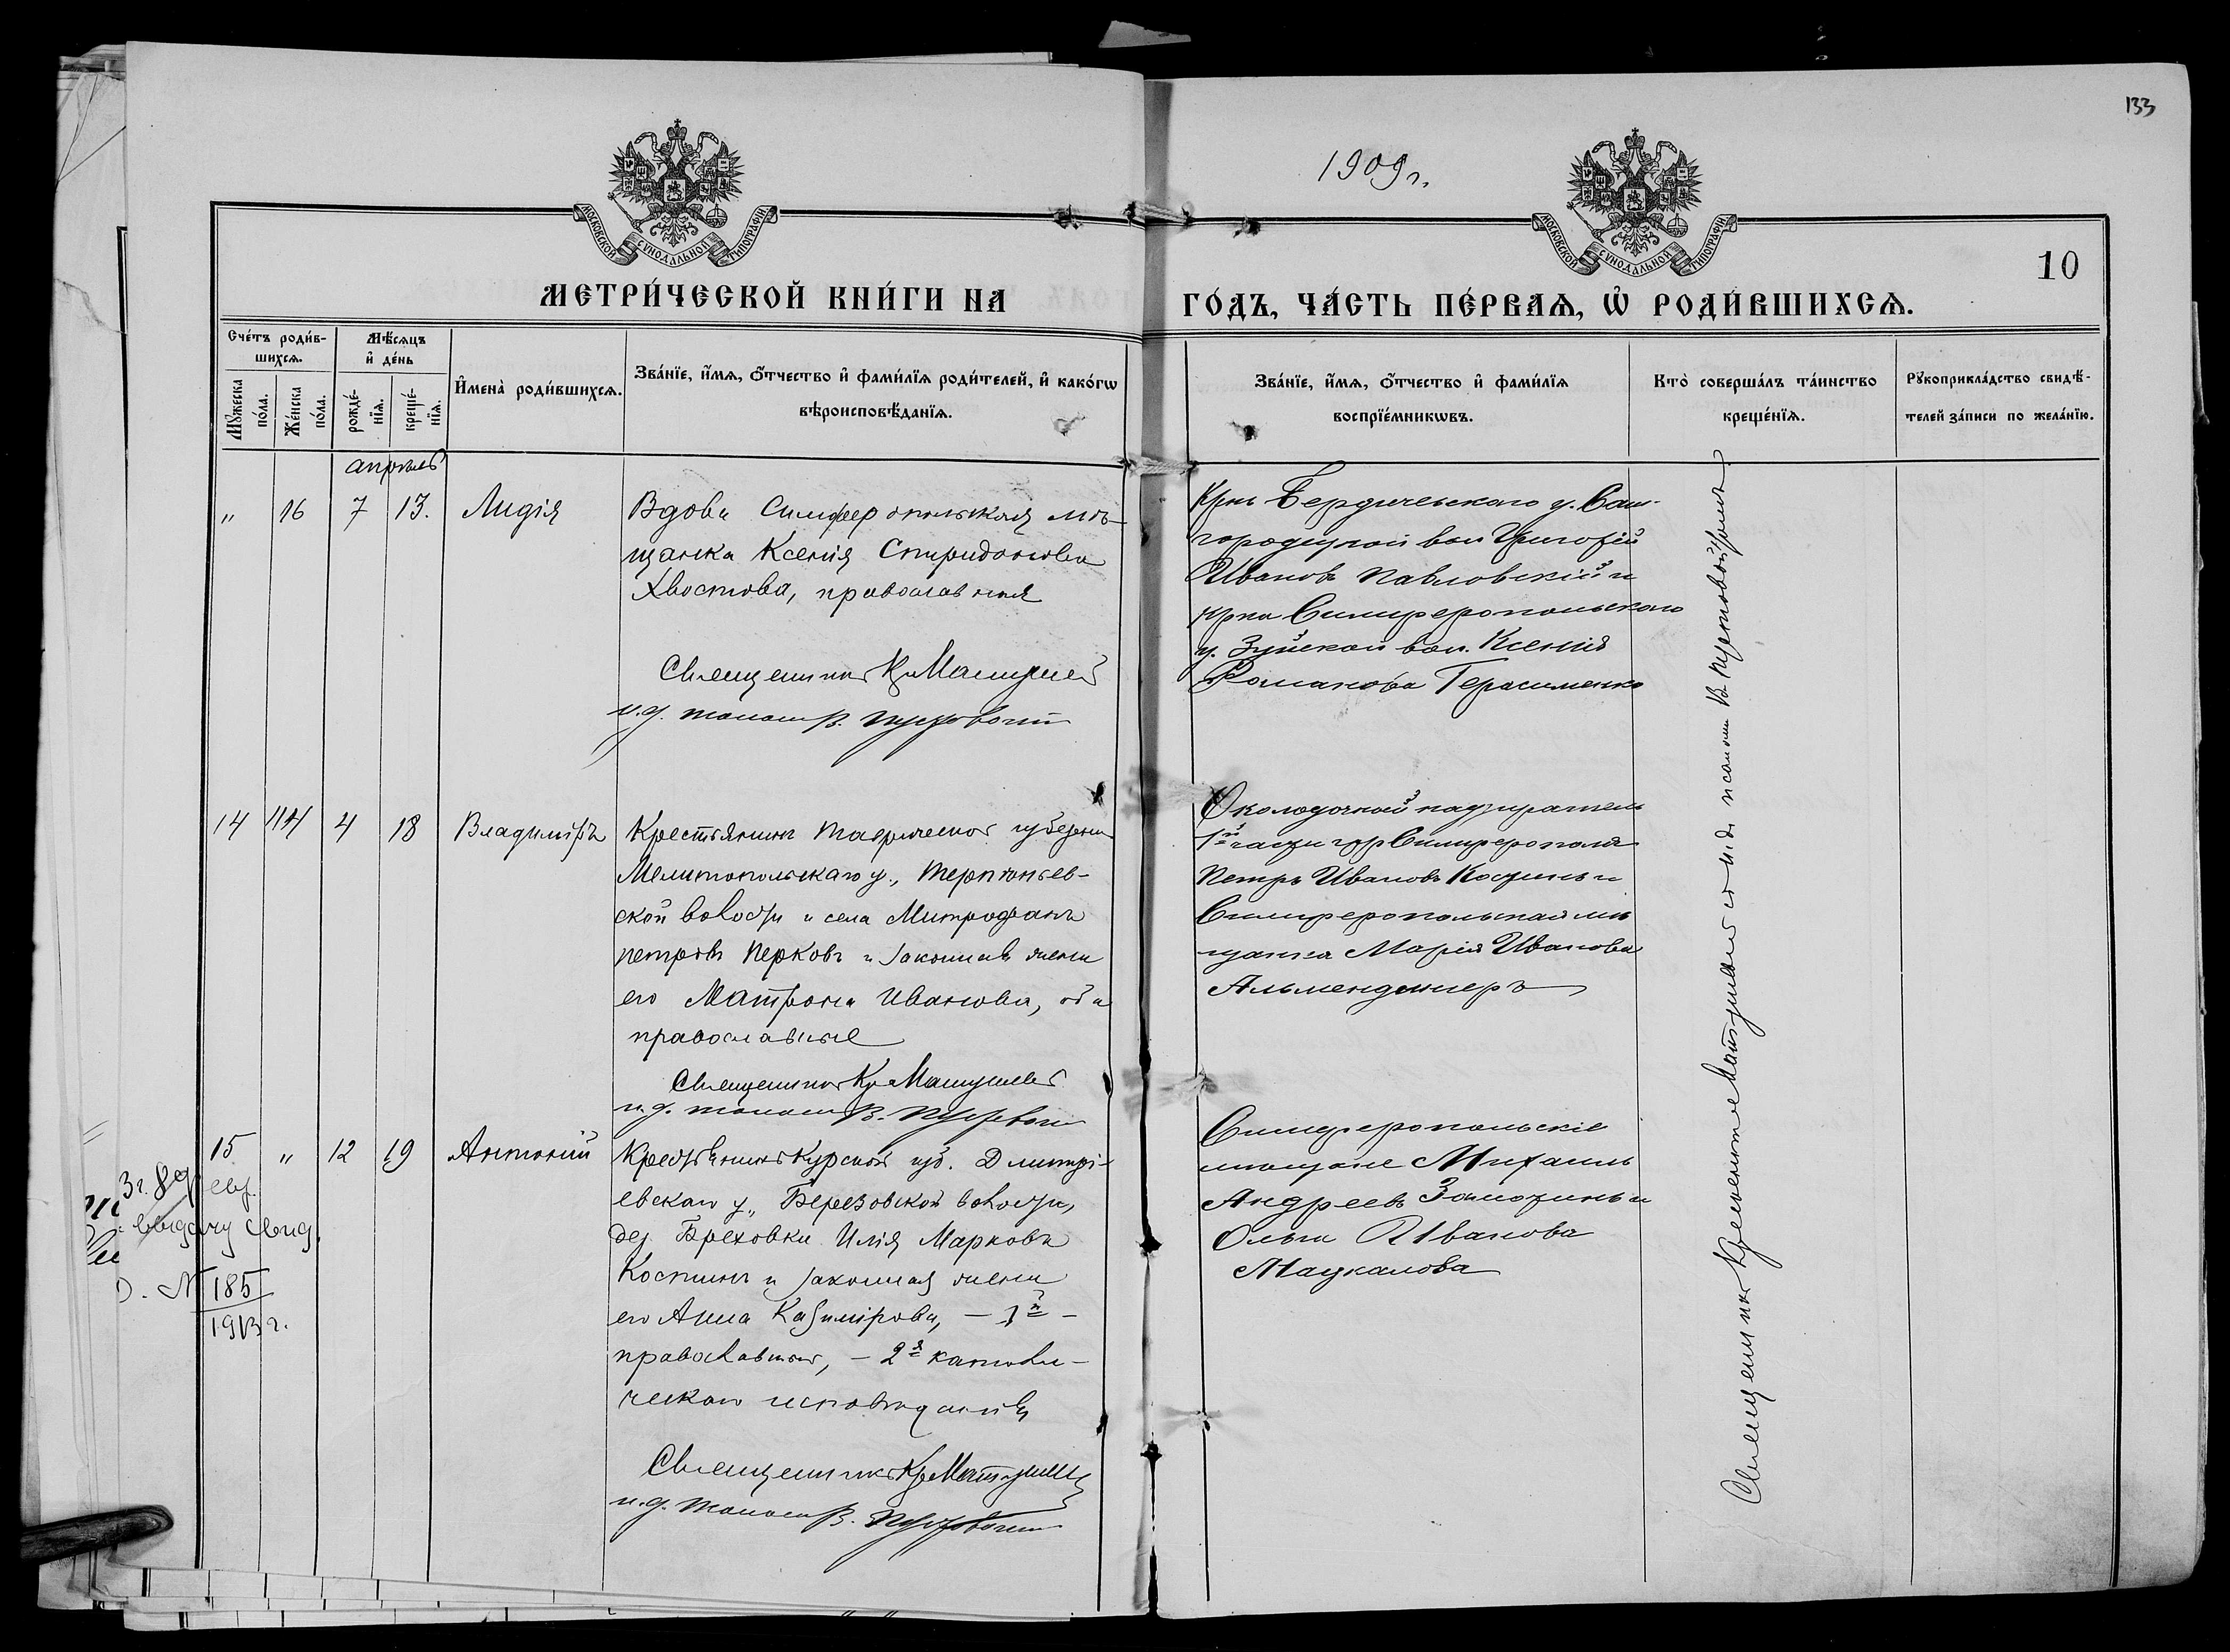 133
1909 г.
МОСКОВСКОЙ СѴНОДАЛЬНОЙ ТИПОГРАФІИ
МОСКОВСКОЙ СѴНОДАЛЬНОЙ ТИПОГРАФІИ
10
МЕТРИ́ЧЕСКОЙ КНИ́ГИ НА ГО́ДЪ, ЧА́СТЬ ПЕ́РВАѦ, Ѡ҆ РОДИ́ВШИХСѦ.
Сче́тъ роди́в-
шихсѧ.
Мꙋ́жеска по́ла.
Же́нска по́ла.
Мѣ́сѧцъ
и҆ де́нь
рожде́-
нїѧ.
креще́-
нїѧ.
И҆мена̀ роди́вшихсѧ.
Зва́нїе, и҆́мѧ, ѻ҆́тчество и҆ фами́лїѧ роди́телей, и҆ како́гѡ
вѣроисповѣ́данїѧ.
Зва́нїе, и҆́мѧ, ѻ҆́тчество и҆ фами́лїѧ
воспрїе́мникѡвъ.
Кто̀ соверша́лъ та́инство
креще́нїѧ.
Рꙋкоприкла́дство свидѣ́-
телей за́писи по жела́нїю.
апрѣль
" 16 7 13. Лидія
Вдова Симферопольская мѣ-
щанка Ксенія Спиридонова
Хвостова, православная
Священникъ Кр Матушевъ
и.д. псалом. В. Пусковойт
Крнъ Бердичевскаго у. Сам-
городецкой вол Григорій
Ивановъ Павловскій и
крка Симферопольскаго
у. Зуйской вол. Ксенія
Романова Герасименко
14 4 18 Владиміръ
Крестьянинъ Таврической губерніи
Мелитопольскаго у., Терпѣньев-
ской волости и села Митрофанъ
Петровъ Перковъ и законная жена
его Матрона Иванова, оба
православные
Священникъ Кр Матушевъ
и.д. псалом В.
Околодочной надзиратель
1й части гор Симферополя
Петръ Ивановъ Косуинъ и
Симферопольская мѣ
щанка Марія Иванова
Альмендингеръ
15 " 12 19 Антоній
Крестьянинъ Курской губ. Дмитрі-
евскаго у., Березовской волости,
дер. Бреховки Илія Марковъ
Костинъ и законная жена
его Анна Казимірова, — 1й —
православный, — 2я католи-
ческаго исповѣданія
Священникъ Кр Матушевъ
и.д. псалом В.
Симферопольскіе
мѣщане Михаилъ
Андреевъ Замотинъ и
Ольга Иванова
Мацкалова
3 г. 89
выдачу свид.
№ 185
1913 г.
Священникъ Крискентъ Матушевъ и и.д. псалом В.